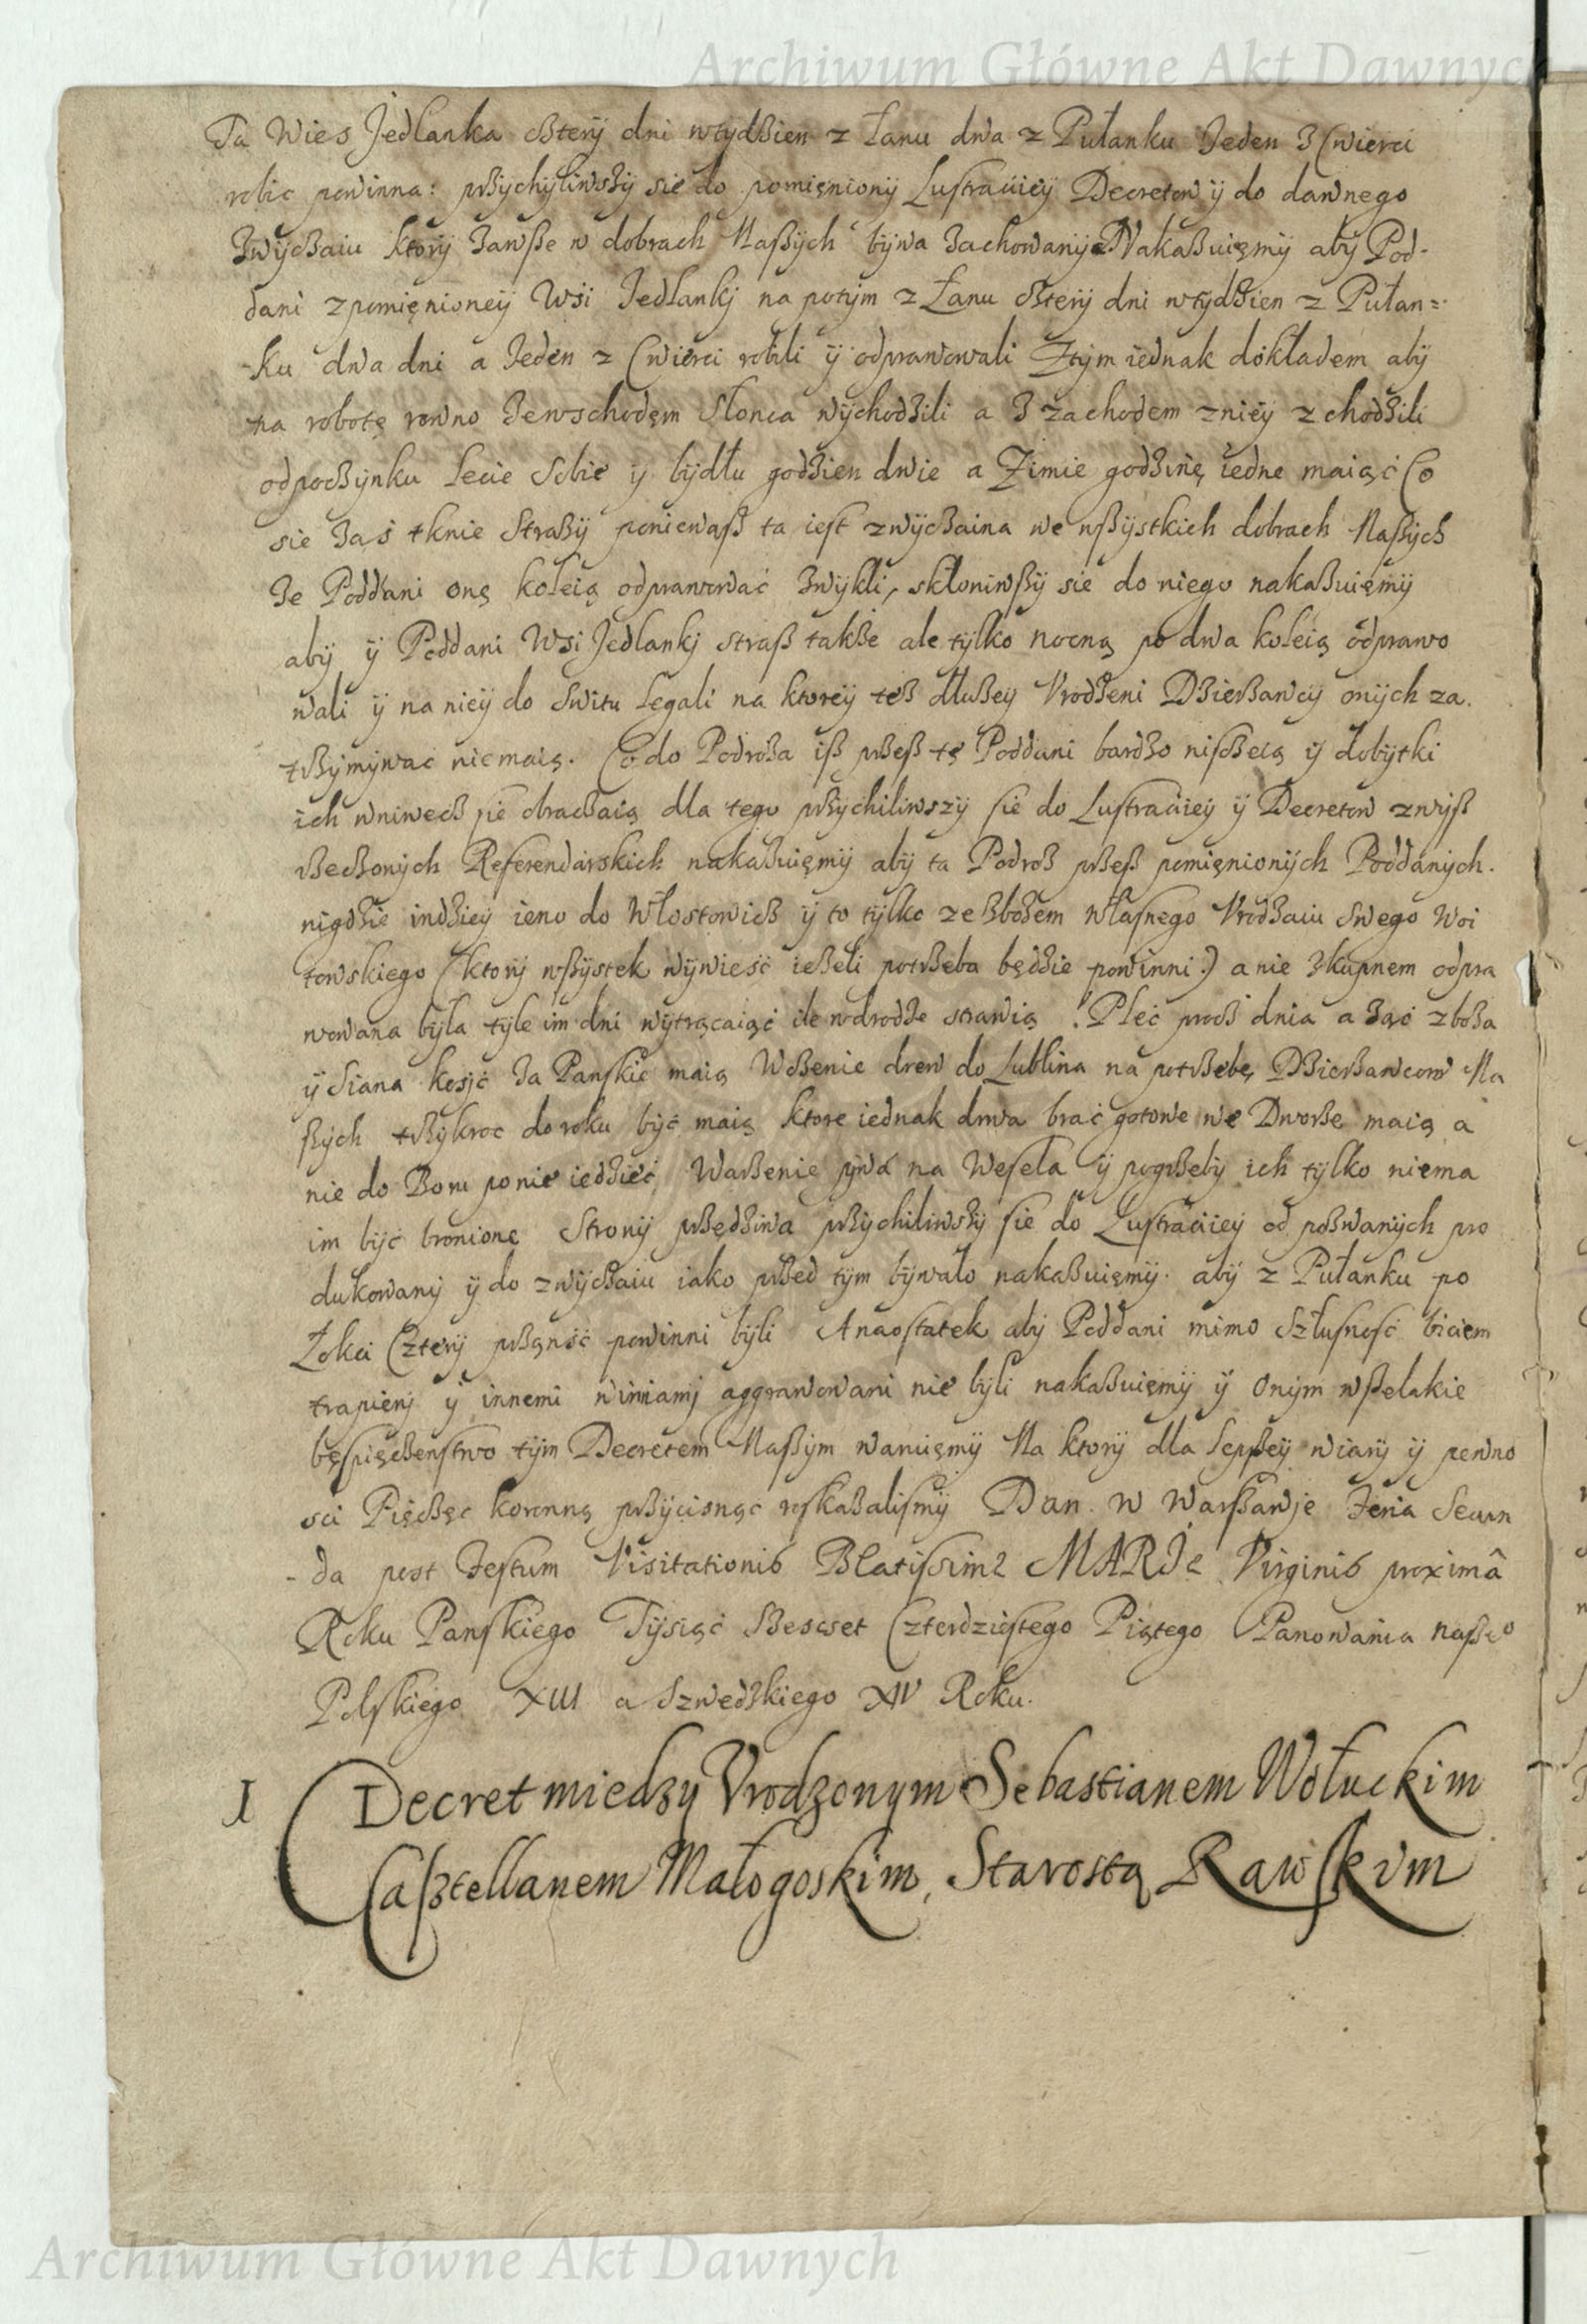 Archiwum Główne Akt Dawnych
Ta Wies Jedlanka czterÿ dni wtydzien z Łanu dwa z Pułanku Jeden z Cwierci
robic powinna: przychyliwszy sie do pomięnionÿ Lustraciieÿ Decretow ÿ do dawnego
zwÿczaiu ktorÿ zawsze w dobrach Naszÿch bÿwa zachowanÿ Nakazuięmÿ abÿ Pod-
dani zpomięnioneÿ Wsi Jedlankj na potÿm z Łanu czterÿ dni wtÿdzien z Pułan=
-ku dwa dni a Jeden z Cwierci robili ÿ odprawowali Ztÿm iednak dokładem abÿ
na robotę rowno zewschodęm Słonca wÿchodzili a z zachodem znieÿ zchodzili
odpoczÿnku Lecie Sobie ÿ bÿdłu godzien dwie a Zimie godzinę iedne maiąć Co
sie zaś tknie Strażÿ poniewasz ta iest zwÿczaina we wszÿstkich dobrach Naszÿch
że Poddani onę koleią odprawować zwÿkli, skłoniwszÿ sie do niego nakazuięmÿ
abÿ ÿ Poddani Wsi Jedlankj straż także ale tÿlko nocną po dwa koleią odprawo
wali ÿ na nieÿ do Switu Legali na ktoreÿ też dłużeÿ Vrodzeni Dzierżawcÿ onÿch za.
trzÿmÿwać niemaią. Co do Podroża iż przesz tę Poddani bardzo niszczeią ÿ dobÿtki
ich wniwecz sie obraczaią dla tego przÿchiliwszÿ sie do Lustraciieÿ ÿ Decretow zwÿsz
rzeczonÿch Referendarskich nakazuięmÿ abÿ ta Podroż przesz pomięnionÿch Poddanÿch.
nigdzie indzieÿ ieno do Włostowicz ÿ to tÿlko ze zbożem własnego Vrodzaiu Swego Woi
towskiego (ktorÿ wszÿstek wÿwieść ieżeli potrzeba będzie powinni:) a nie zkupnem odpra
wowana bÿła tÿle im dni wÿtrącaiąć ile wdrodze strawią. Pleć procz dnia a żąć zboża
ÿ Siana kosić za Panskie maią Wożenie drew do Lublina na potrzebę Dzierżawcow Na
szÿch trzÿkroc do roku bÿć maią ktore iednak drwa brać gotowe we Dworze maią a
nie do Boru ponie iedzieć Warzenie piwa na Wesela ÿ pogrzebÿ ich tÿlko niema
im bÿć bronione Stronÿ przędziwa przÿchiliwszÿ sie do Lustraciieÿ od pozwanÿch pro
dukowanÿ ÿ do zwÿczaiu iako przed tÿm bÿwało nakazuięmÿ. abÿ z Pułanku po
Łokci Czterÿ prząnść powinni bÿli A naostatek abÿ Poddani mimo Szłusność biciem
trapienj ÿ innemi winiamj aggrawowani nie bÿli nakazuięmÿ ÿ Onÿm wszelakie
bęspięczenstwo tÿm Decretem Naszÿm waruięmÿ Na ktorÿ dla Lepszeÿ wiarÿ ÿ pewno
sci Pięczęc koronną przÿcisnąć roskazalismÿ Dan. w Warszawje Feria Secun
-da post Festum Visitationis Beatissimæ MARIÆ Virginis proximâ
Roku Panskiego Tÿsiąć Szesćset Czterdziestego Piątego Panowania naszego
Polskiego XIII a Szwedzkiego XIV Roku.
I Decret miedzy Vrodzonym Sebastianem Wołuckim
Casztellanem Małogoskim, Starostą Rawskim
Archiwum Główne Akt Dawnych